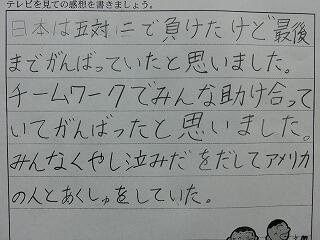 テレビを見ての感想を書きましょう。
日本は五対二で負けたけど最後
までがんばっていたと思いました。
チームワークでみんな助け合って
いてがんばったと思いました。
みんなくやし泣みだをだしてアメリカ
の人とあくしゅをしていた。